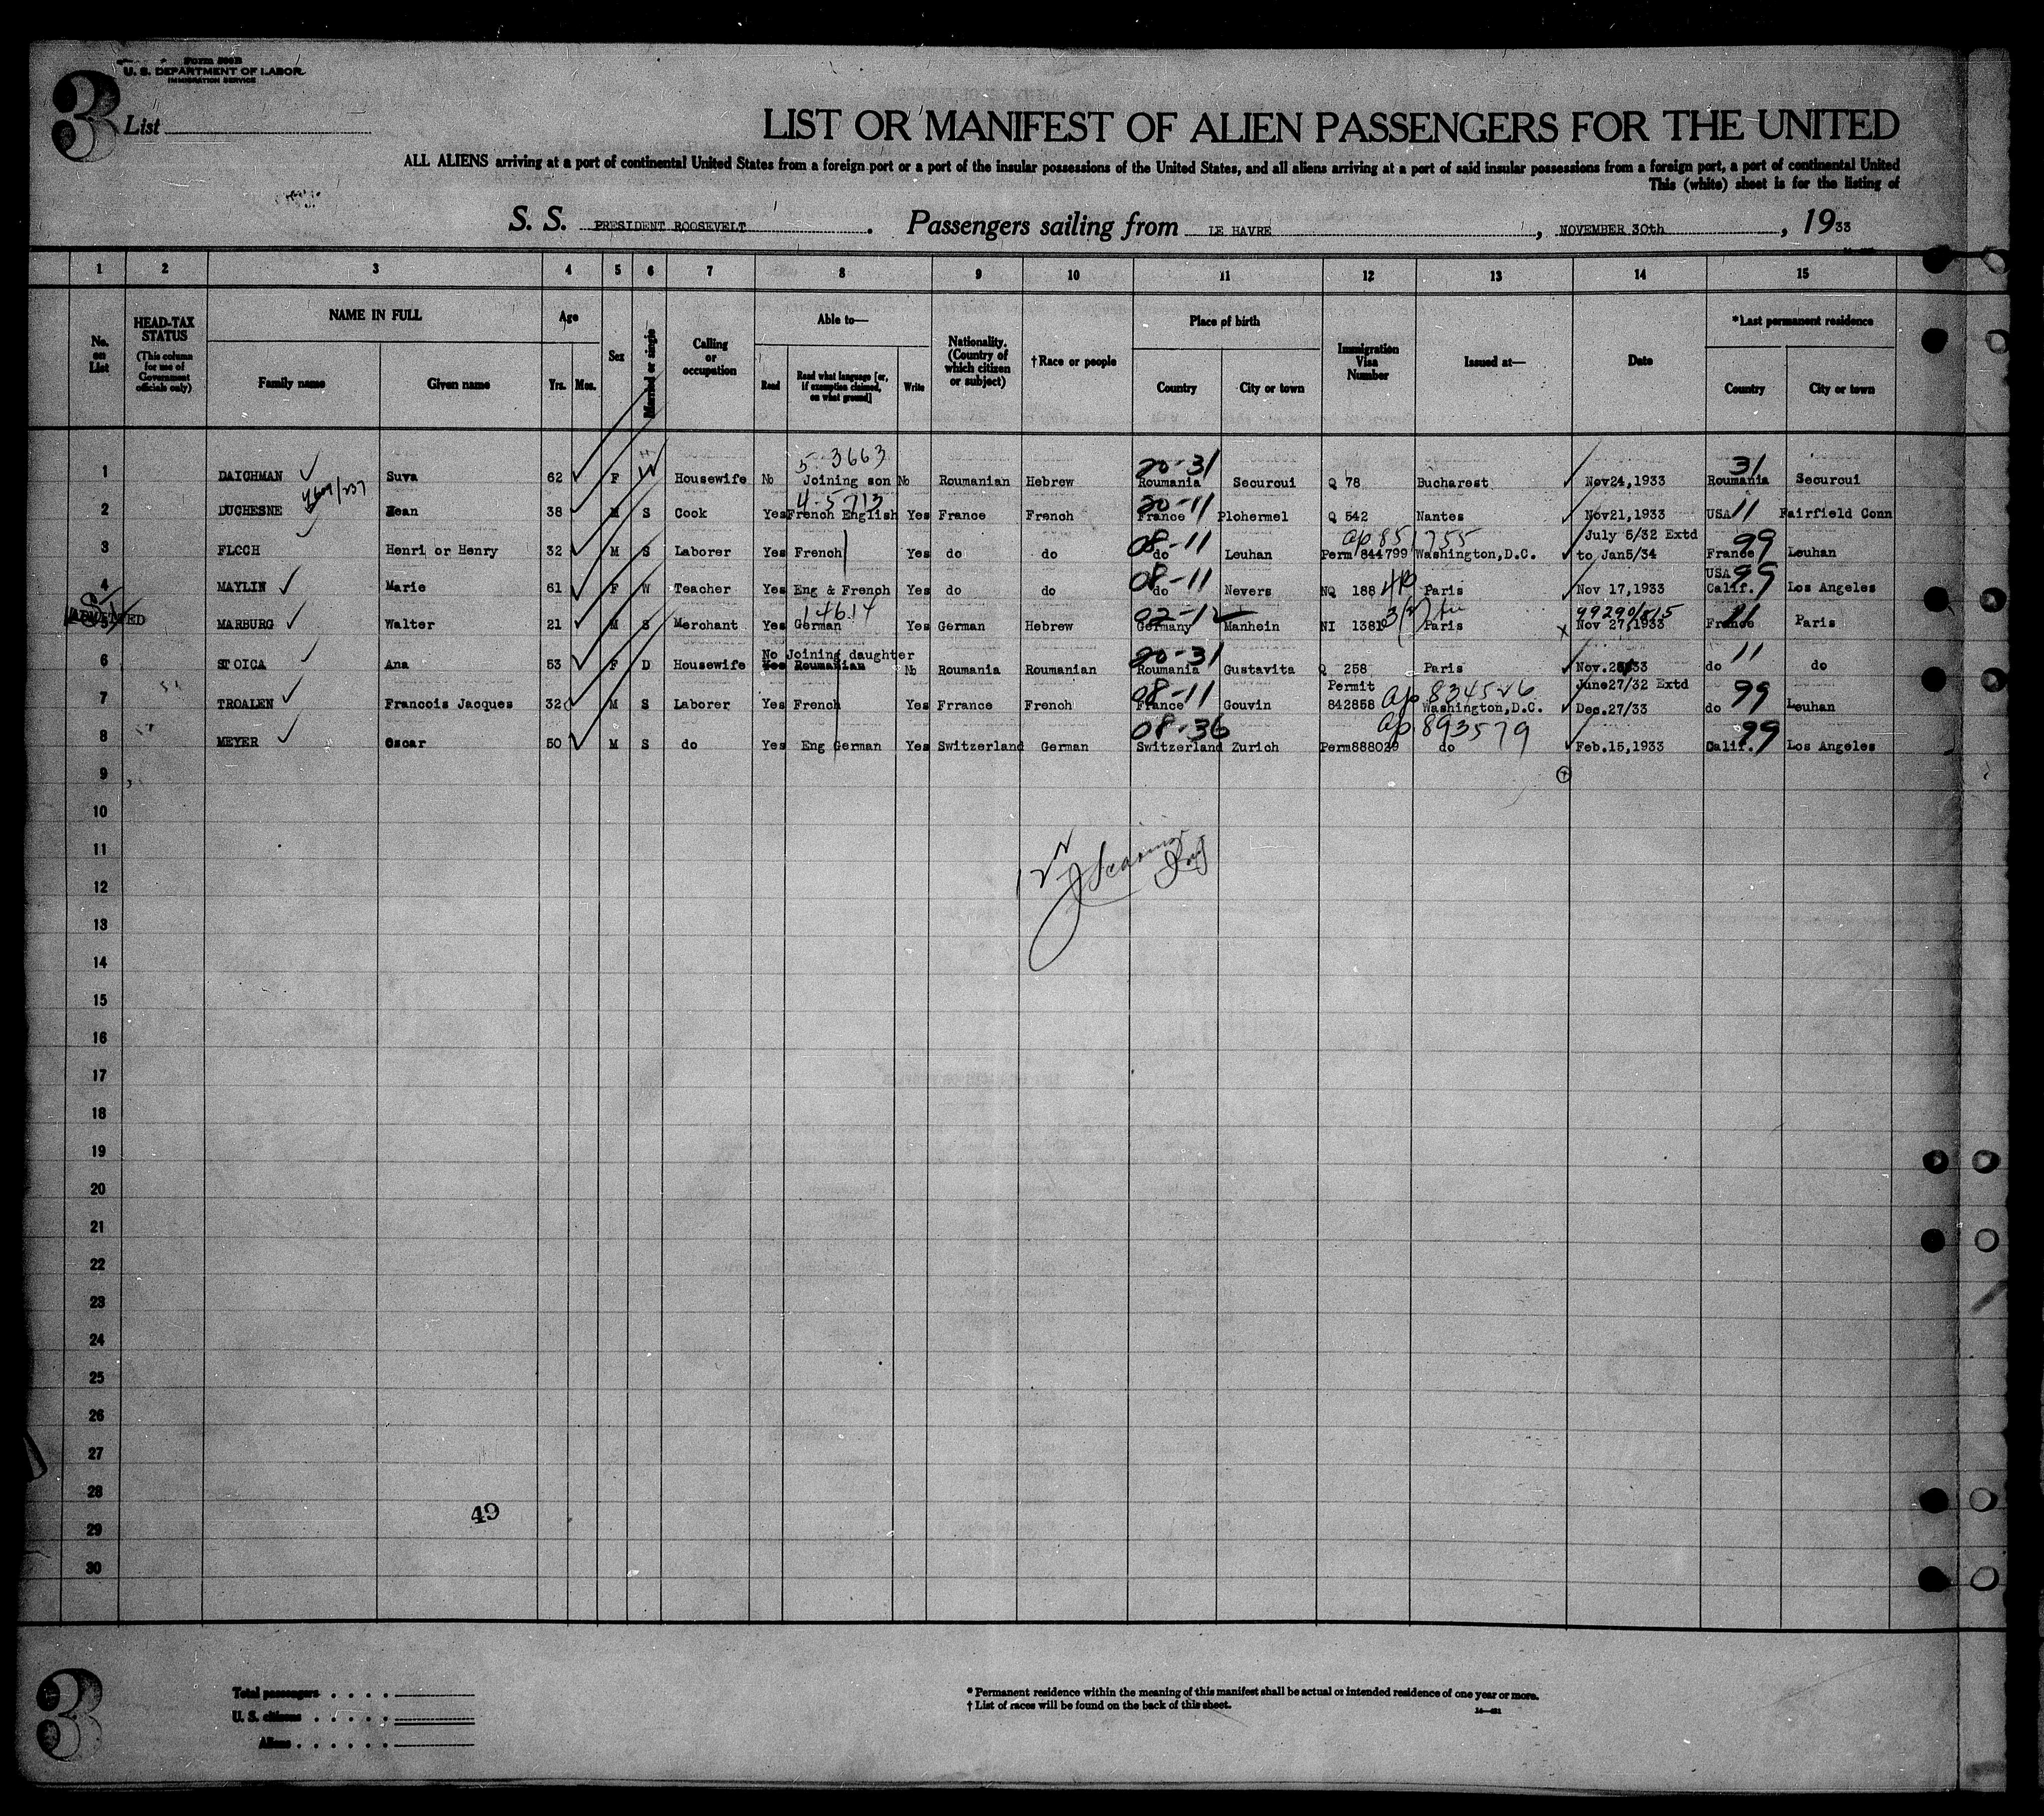 3
Form 500B
U. S. DEPARTMENT OF LABOR
IMMIGRATION SERVICE
List
LIST OR MANIFEST OF ALIEN PASSENGERS FOR THE UNITED
ALL ALIENS arriving at a port of continental United States from a foreign port or a port of the insular possessions of the United States, and all aliens arriving at a port of said insular possessions from a foreign port, a port of continental United
This (white) sheet is for the listing of
S. S. PRESIDENT ROOSEVELT . Passengers sailing from LE HAVRE , NOVEMBER 30th , 1933
1 2 3 4 5 6 7 8 9 10 11 12 13 14 15
No. on List
HEAD-TAX STATUS (This column for use of Government officials only)
NAME IN FULL Family name Given name
Age Yrs. Mos.
Sex
Married or single
Calling or occupation
Able to— Read Read what language [or, if exemption claimed, on what ground] Write
Nationality. (Country of which citizen or subject)
†Race or people
Place of birth Country City or town
Immigration Visa Number
Issued at—
Date
*Last permanent residence Country City or town
5-3663 20-31 31
1 DAICHMAN Suva 62 F W Housewife No Joining son No Roumanian Hebrew Roumania Securoui Q 78 Bucharest Nov24,1933 Roumania Securoui
4-5713 20-11 11
2 DUCHESNE Jean 38 M S Cook Yes French English Yes France French France Plohermel Q 542 Nantes Nov21,1933 USA Fairfield Conn
08-11 ap 851755 July 5/32 Extd 99
3 FLOCH Henri or Henry 32 M S Laborer Yes French Yes do do do Leuhan Perm 844799 Washington,D.C. to Jan5/34 France Leuhan
08-11 USA 99
4 MAYLIN Marie 61 F W Teacher Yes Eng & French Yes do do do Nevers NQ 188 Paris Nov 17,1933 Calif. Los Angeles
ADMITTED 14614 02-12
MARBURG Walter 21 M S Merchant Yes German Yes German Hebrew Germany Manhein NI 1381 Paris Nov 27,1933 France Paris
No Joining daughter 20-31 11
6 STOICA Ana 53 F D Housewife Yes Roumanian No Roumania Roumanian Roumania Gustavita Q 258 Paris Nov.28/33 do do
Permit 08-11 ap 834526 June27/32 Extd 99
7 TROALEN Francois Jacques 32 M S Laborer Yes French Yes Frrance French France Gouvin 842858 Washington,D.C. Dec.27/33 do Leuhan
08-36 ap 893579 99
8 MEYER Oscar 50 M S do Yes Eng German Yes Switzerland German Switzerland Zurich Perm888029 do Feb.15,1933 Calif. Los Angeles
9
10
11
12
13
14
15
16
17
18
19
20
21
22
23
24
25
26
27
28
49
29
30
3
Total passengers
U. S. citizens
Aliens
* Permanent residence within the meaning of this manifest shall be actual or intended residence of one year or more.
† List of races will be found on the back of this sheet.